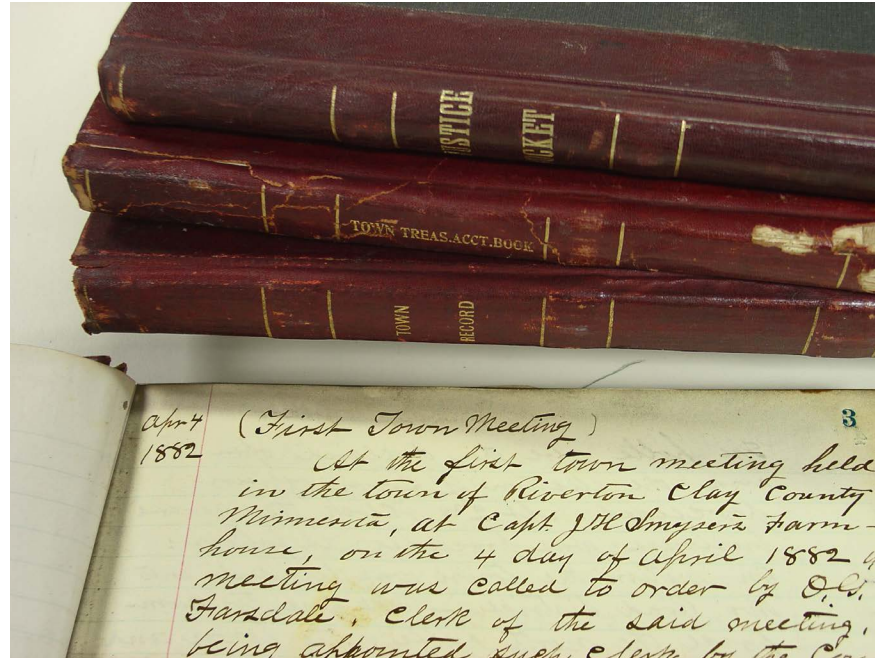 JUSTICE
DOCKET
TOWN TREAS.ACCT.BOOK
TOWN
RECORD
3
Apr 4
1882
(First Town Meeting)
At the first town meeting held
in the town of Riverton Clay County
Minnesota, at Capt. J H Smysers Farm-
house, on the 4 day of April 1882
meeting was called to order by O.G.
Farsdale, Clerk of the said meeting,
being appointed such Clerk by the